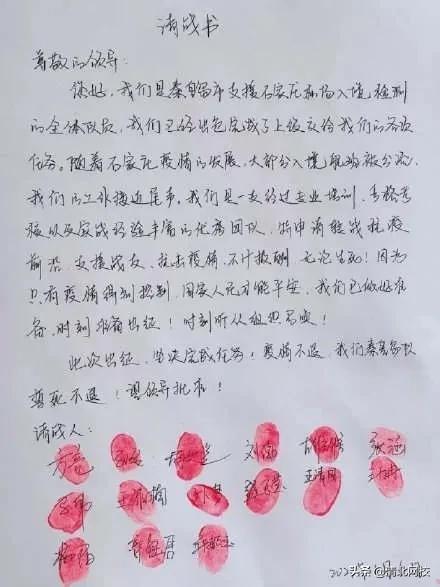 请战书
尊敬的领导：
您好，我们是秦皇岛市支援石家庄机场入境检测
的全体队员，我们已经出色完成了上级交给我们的各次
任务。随着石家庄疫情的发展，大部分入境航班被分流，
我们的工作接近尾声。我们是一支经过专业培训，考核考
验以及实战经验丰富的优秀团队，特申请转战抗疫
前沿，支援战友，抗击疫情，不计报酬，无论生死！因为
只有疫情得到控制，国家人民才能平安，我们已做好准
备，时刻准备出征！时刻听从组织召唤！
此次出征，坚决完成任务！疫情不退，我们秦皇岛队
誓死不退！望领导批示！
请战人：
头条 @河北网校